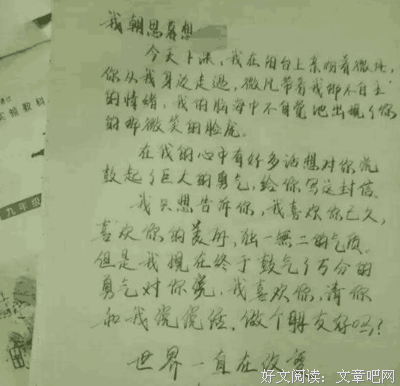 我朝思暮想
今天下课，我在阳台上亲吻着微风，
你从我身边走过，微风带着我那不自主
的情绪，我的脑海中不自觉地出现了你
的那微笑的脸庞
在我的心中有好多话想对你说
鼓起了巨人的勇气，给你写这封信
我只想告诉你，我喜欢你已久，
喜欢你的美好，独一无二的气质
但是我现在终于鼓气了万分的
勇气对你说，我喜欢你，请你
和我说说话，做个朋友好吗？
世界一直在
实验教科
九年级
好文阅读：文章吧网